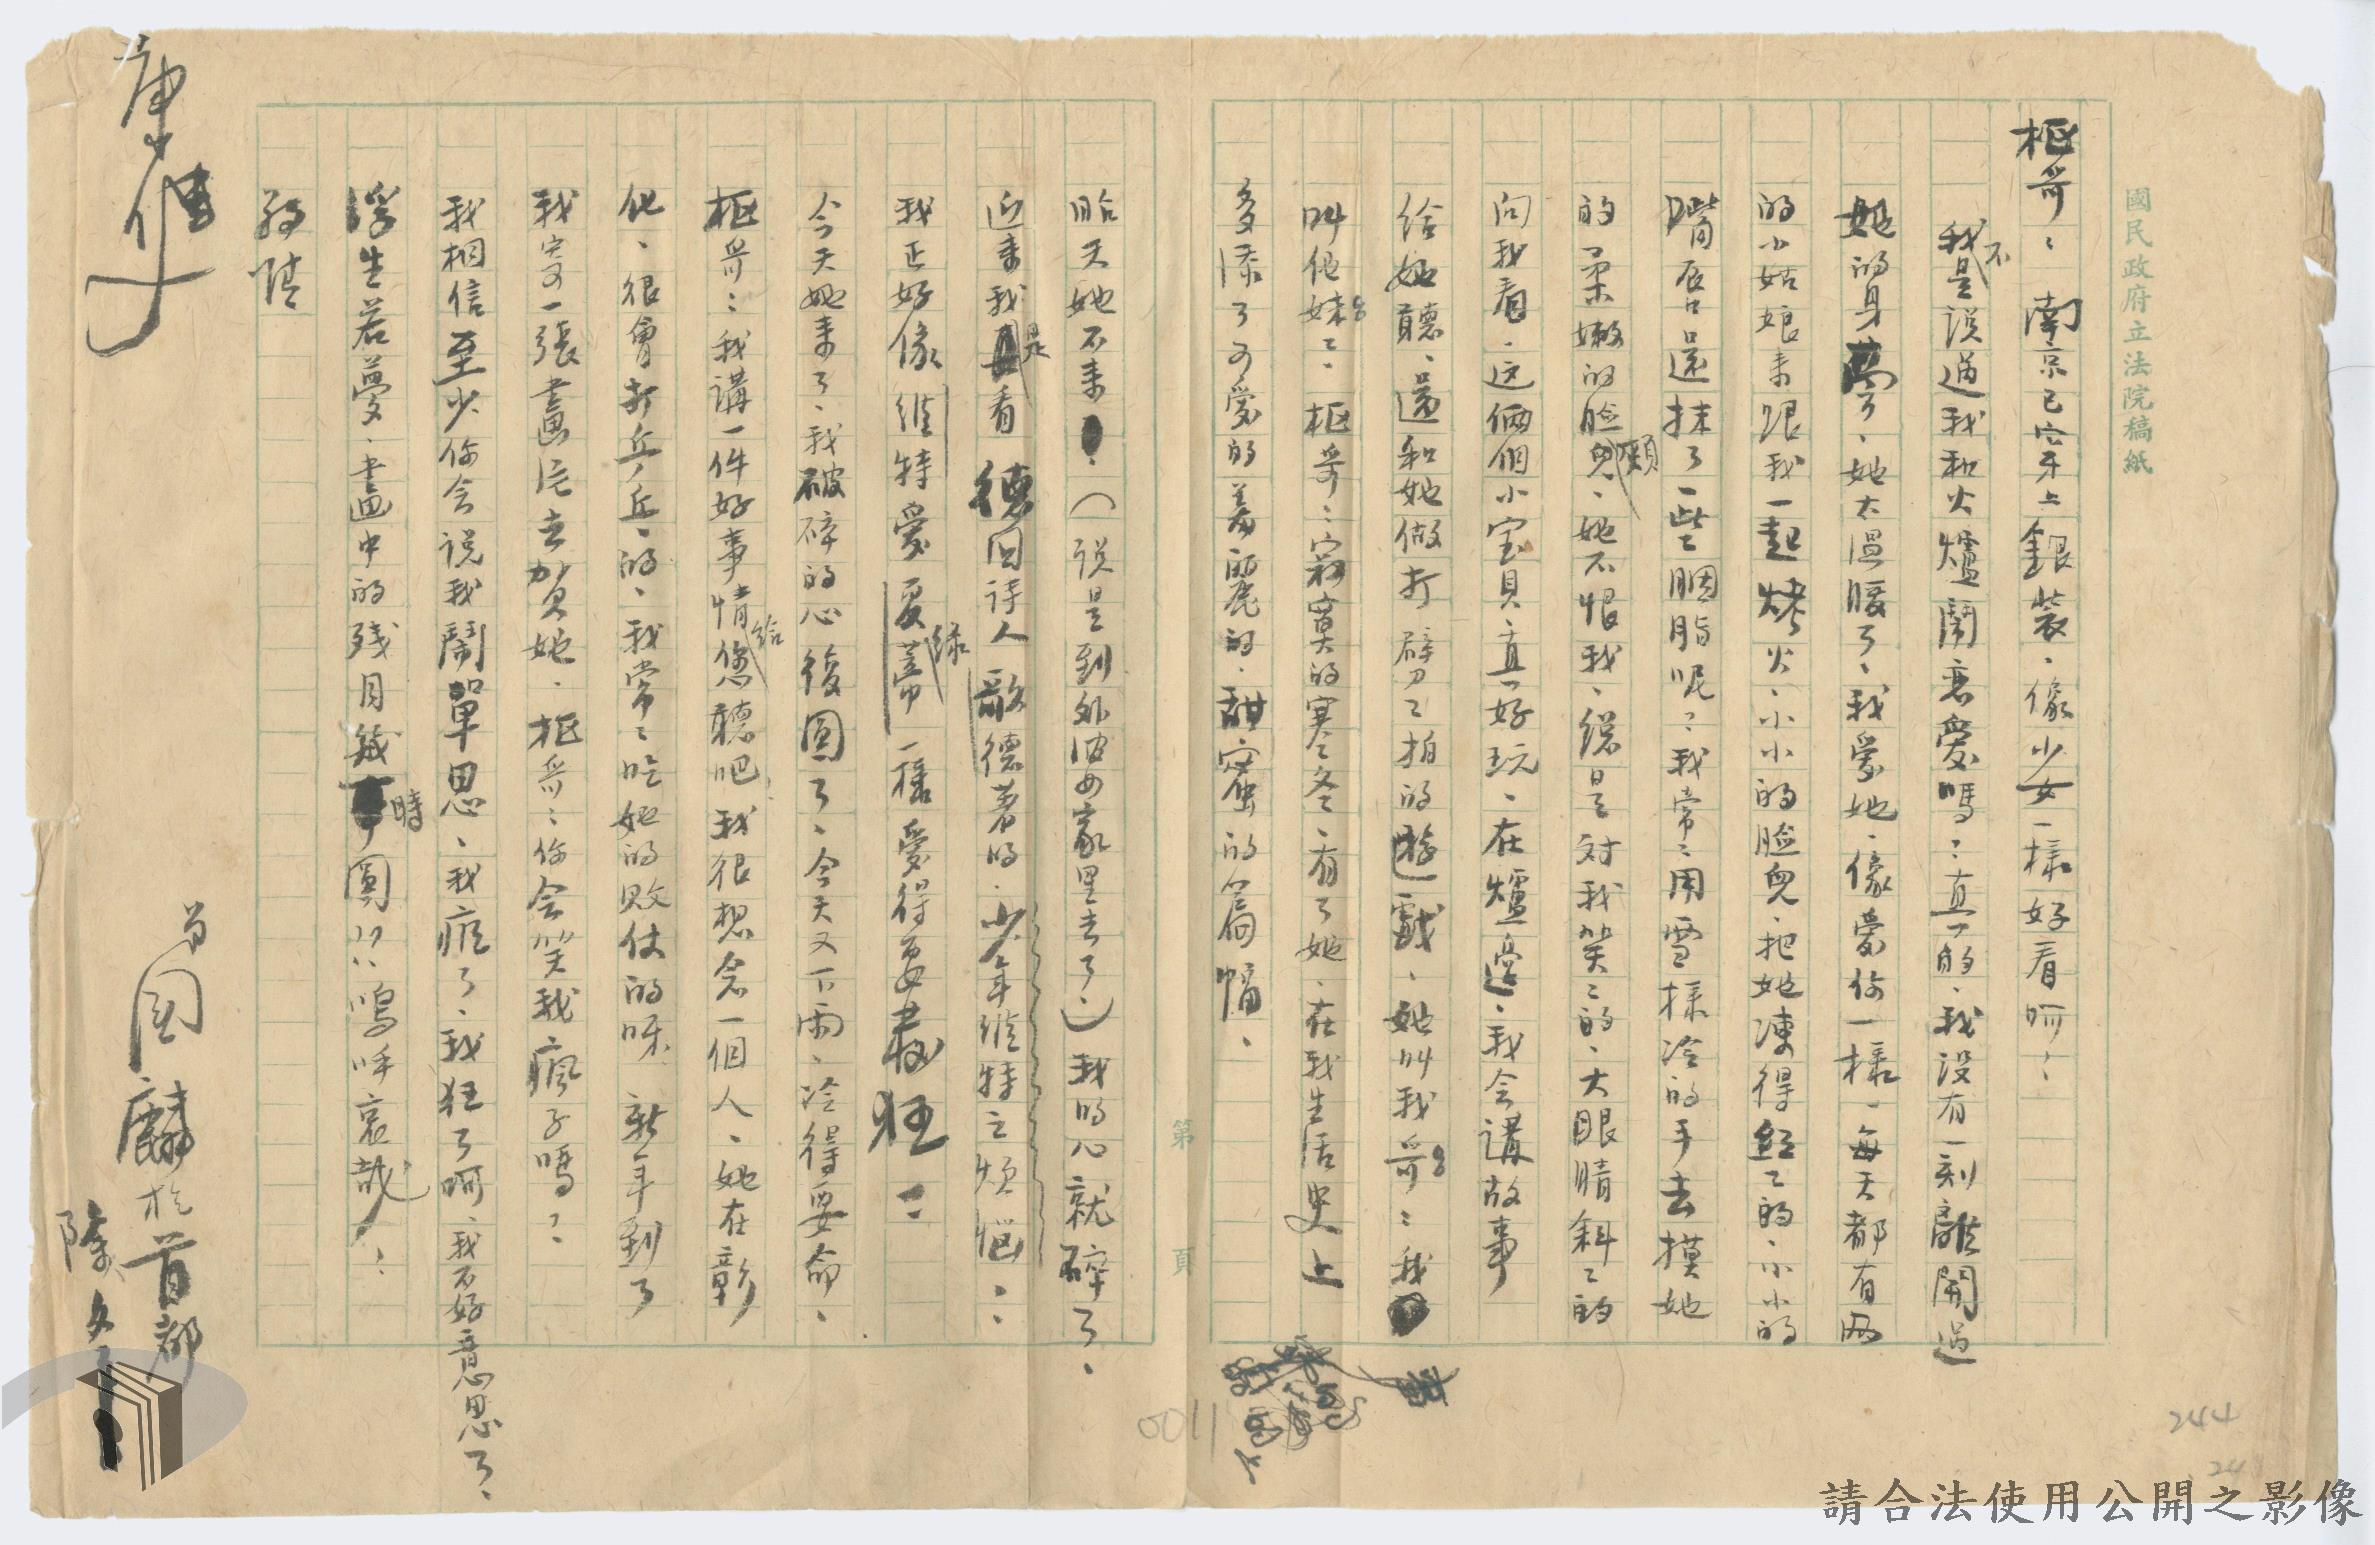 國民政府立法院稿紙
枢哥：南京已穿上銀裝、像少女一樣好看呵！
我不是说过我和火爐鬧恋愛嗎？真的、我没有一刻離開过
她的身旁了、她太温暖了、我爱她、像爱你一様、每天都有两
的小姑娘来跟我一起烤火、小小的脸兒、把她凍得紅紅的、小小的
嘴唇还抹了一些胭脂呢？我常常用雪様冷的手去摸她
的柔嫩的脸頰、她不恨我、總是对我笑笑的、大眼睛斜斜的
向我看、这俩個小宝貝、真好玩、在爐边、我会講故事
給她聽、還和她做打劈劈拍的遊戲、她叫我哥哥：我
叫他妹妹、枢哥：寂寞的寒冬、有了她、在我生活史上
多添了可爱的美麗的、甜蜜的篇幅、
第 頁
昨天她不来、（说是到外婆家里去了、）我的心就碎了、
近来我是看德国诗人歌德著的、少年维特之烦恼、
我正好像维特爱夏绿蒂一様爱得要發狂！
今天她来了、我破碎的心復圓了、今天又下雨、冷得要命、
枢哥：我講一件好事情給您聽吧、我很想念一個人、她在彰
化、很會打乒乓的、我常常吃她的败仗的呀、新年到了
我寄一張畫片去贺她、枢哥：你会笑我瘋子嗎？
我相信至少你会说我鬧單思、我疯了、我狂了呵、我不好意思了、
浮生若夢、畫中的残月幾時圓??嗚呼哀哉！
敬煩
康健
弟
國麟於首都
除夕
0011
244
24
請合法使用公開之影像